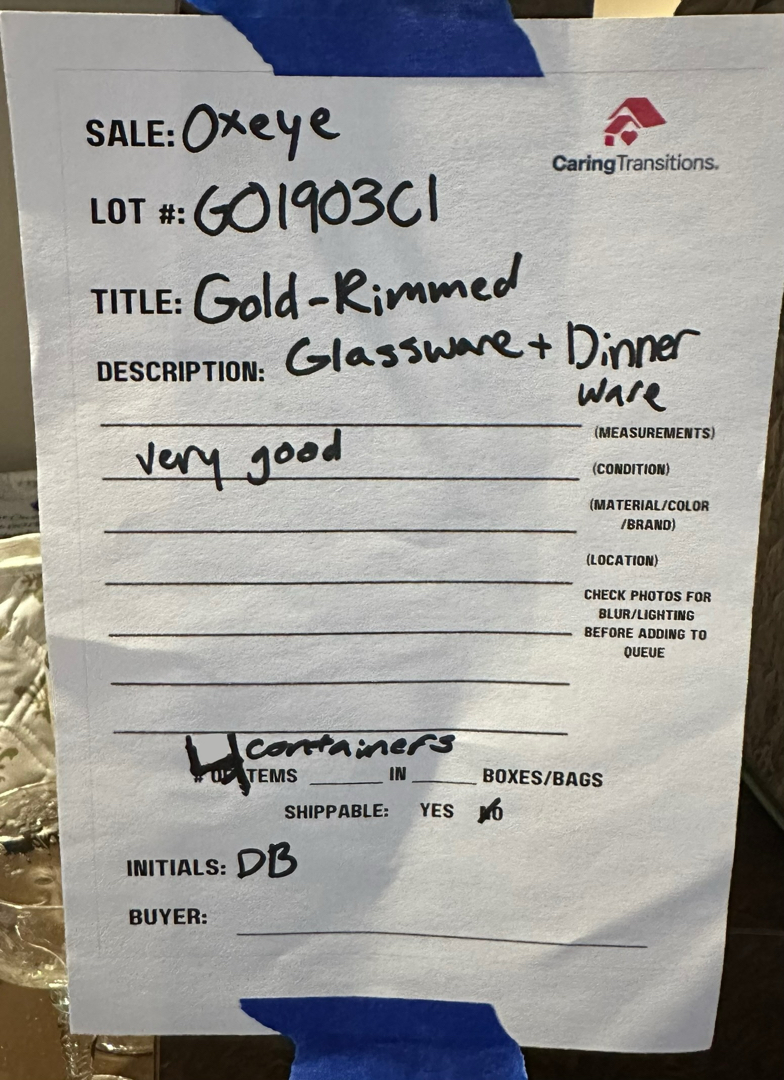 SALE: Oxeye
CaringTransitions.
LOT #: GO1903C1
TITLE: Gold-Rimmed
DESCRIPTION: Glassware + Dinner
ware
(MEASUREMENTS)
very good
(CONDITION)
(MATERIAL/COLOR
/BRAND)
(LOCATION)
CHECK PHOTOS FOR
BLUR/LIGHTING
BEFORE ADDING TO
QUEUE
4 containers
# OF ITEMS ______ IN ______ BOXES/BAGS
SHIPPABLE: YES NO
INITIALS: DB
BUYER: